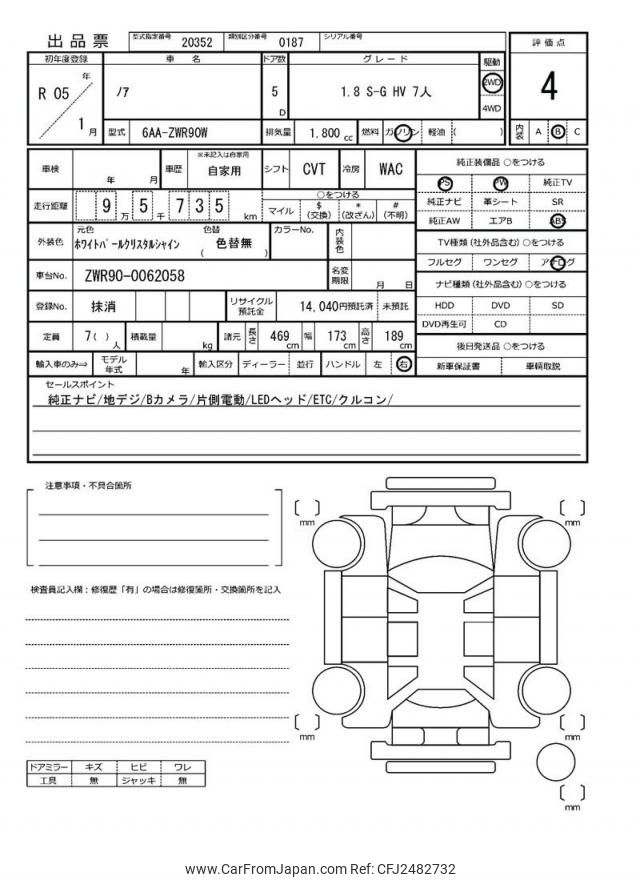 出品票 型式指定番号 20352 類別区分番号 0187 シリアル番号
評価点
4
内装 A B C
初年度登録 車名 ドア数 グレード 駆動
R 05 年 1 月
ﾉｱ 5 D 1.8 S-G HV 7人 2WD 4WD
型式 6AA-ZWR90W 排気量 1,800 cc 燃料 ガソリン 軽油 ( )
車検 年 月 車歴 ※未記入は自家用 自家用 シフト CVT 冷房 WAC
走行距離 9 万 5 千 7 3 5 km
○をつける
マイル $ (交換) * (改ざん) # (不明)
外装色 元色 ﾎﾜｲﾄﾊﾟｰﾙｸﾘｽﾀﾙｼｬｲﾝ 色替 ( 色替無 ) カラーNo. 内装色
車台No. ZWR90-0062058 名変期限 月 日
登録No. 抹消 リサイクル預託金 14,040円預託済 未預託
定員 7( ) 人 積載量 kg 諸元 長さ 469 cm 幅 173 cm 高さ 189 cm
輸入車のみ⇒ モデル年式 年 輸入区分 ディーラー 並行 ハンドル 左 右
純正装備品 ○をつける
PS PW 純正TV
純正ナビ 革シート SR
純正AW エアB ABS
TV種類(社外品含む)○をつける
フルセグ ワンセグ アナログ
ナビ種類(社外品含む)○をつける
HDD DVD SD
DVD再生可 CD
後日発送品 ○をつける
新車保証書 車輌取説
セールスポイント
純正ナビ/地デジ/Bカメラ/片側電動/LEDヘッド/ETC/クルコン/
注意事項・不具合箇所
検査員記入欄：修復歴「有」の場合は修復箇所・交換箇所を記入
ドアミラー キズ ヒビ ワレ
工具 無 ジャッキ 無
[ ] mm
[ ] mm
[ ] mm
[ ] mm
[ ] mm
www.CarFromJapan.com Ref: CFJ2482732